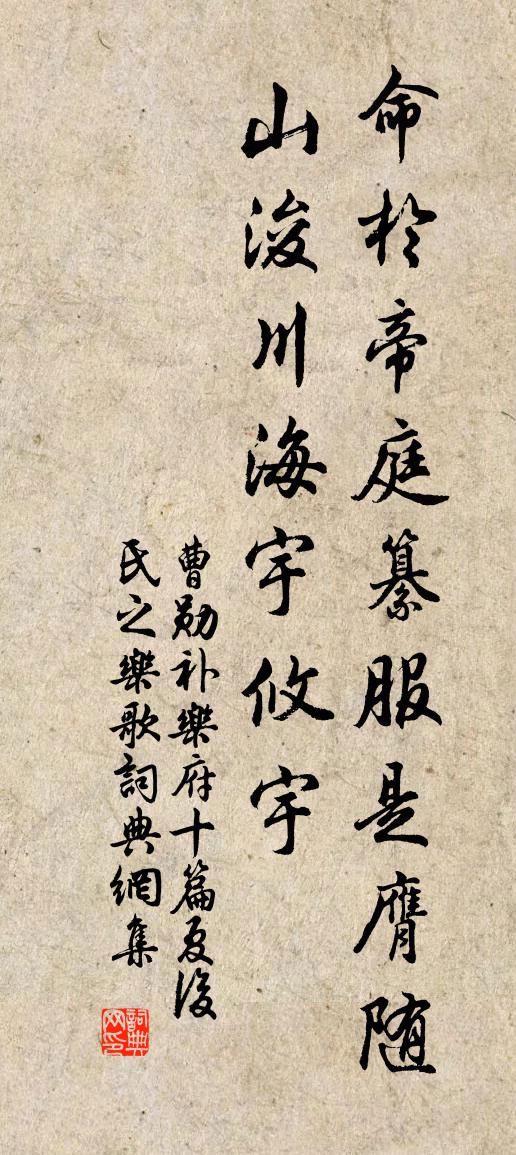 命於帝庭纂服是膺随
山浚川海宇攸宇
曹勋补樂府十篇夏後
氏之樂歌詞典網集
詞典
网印